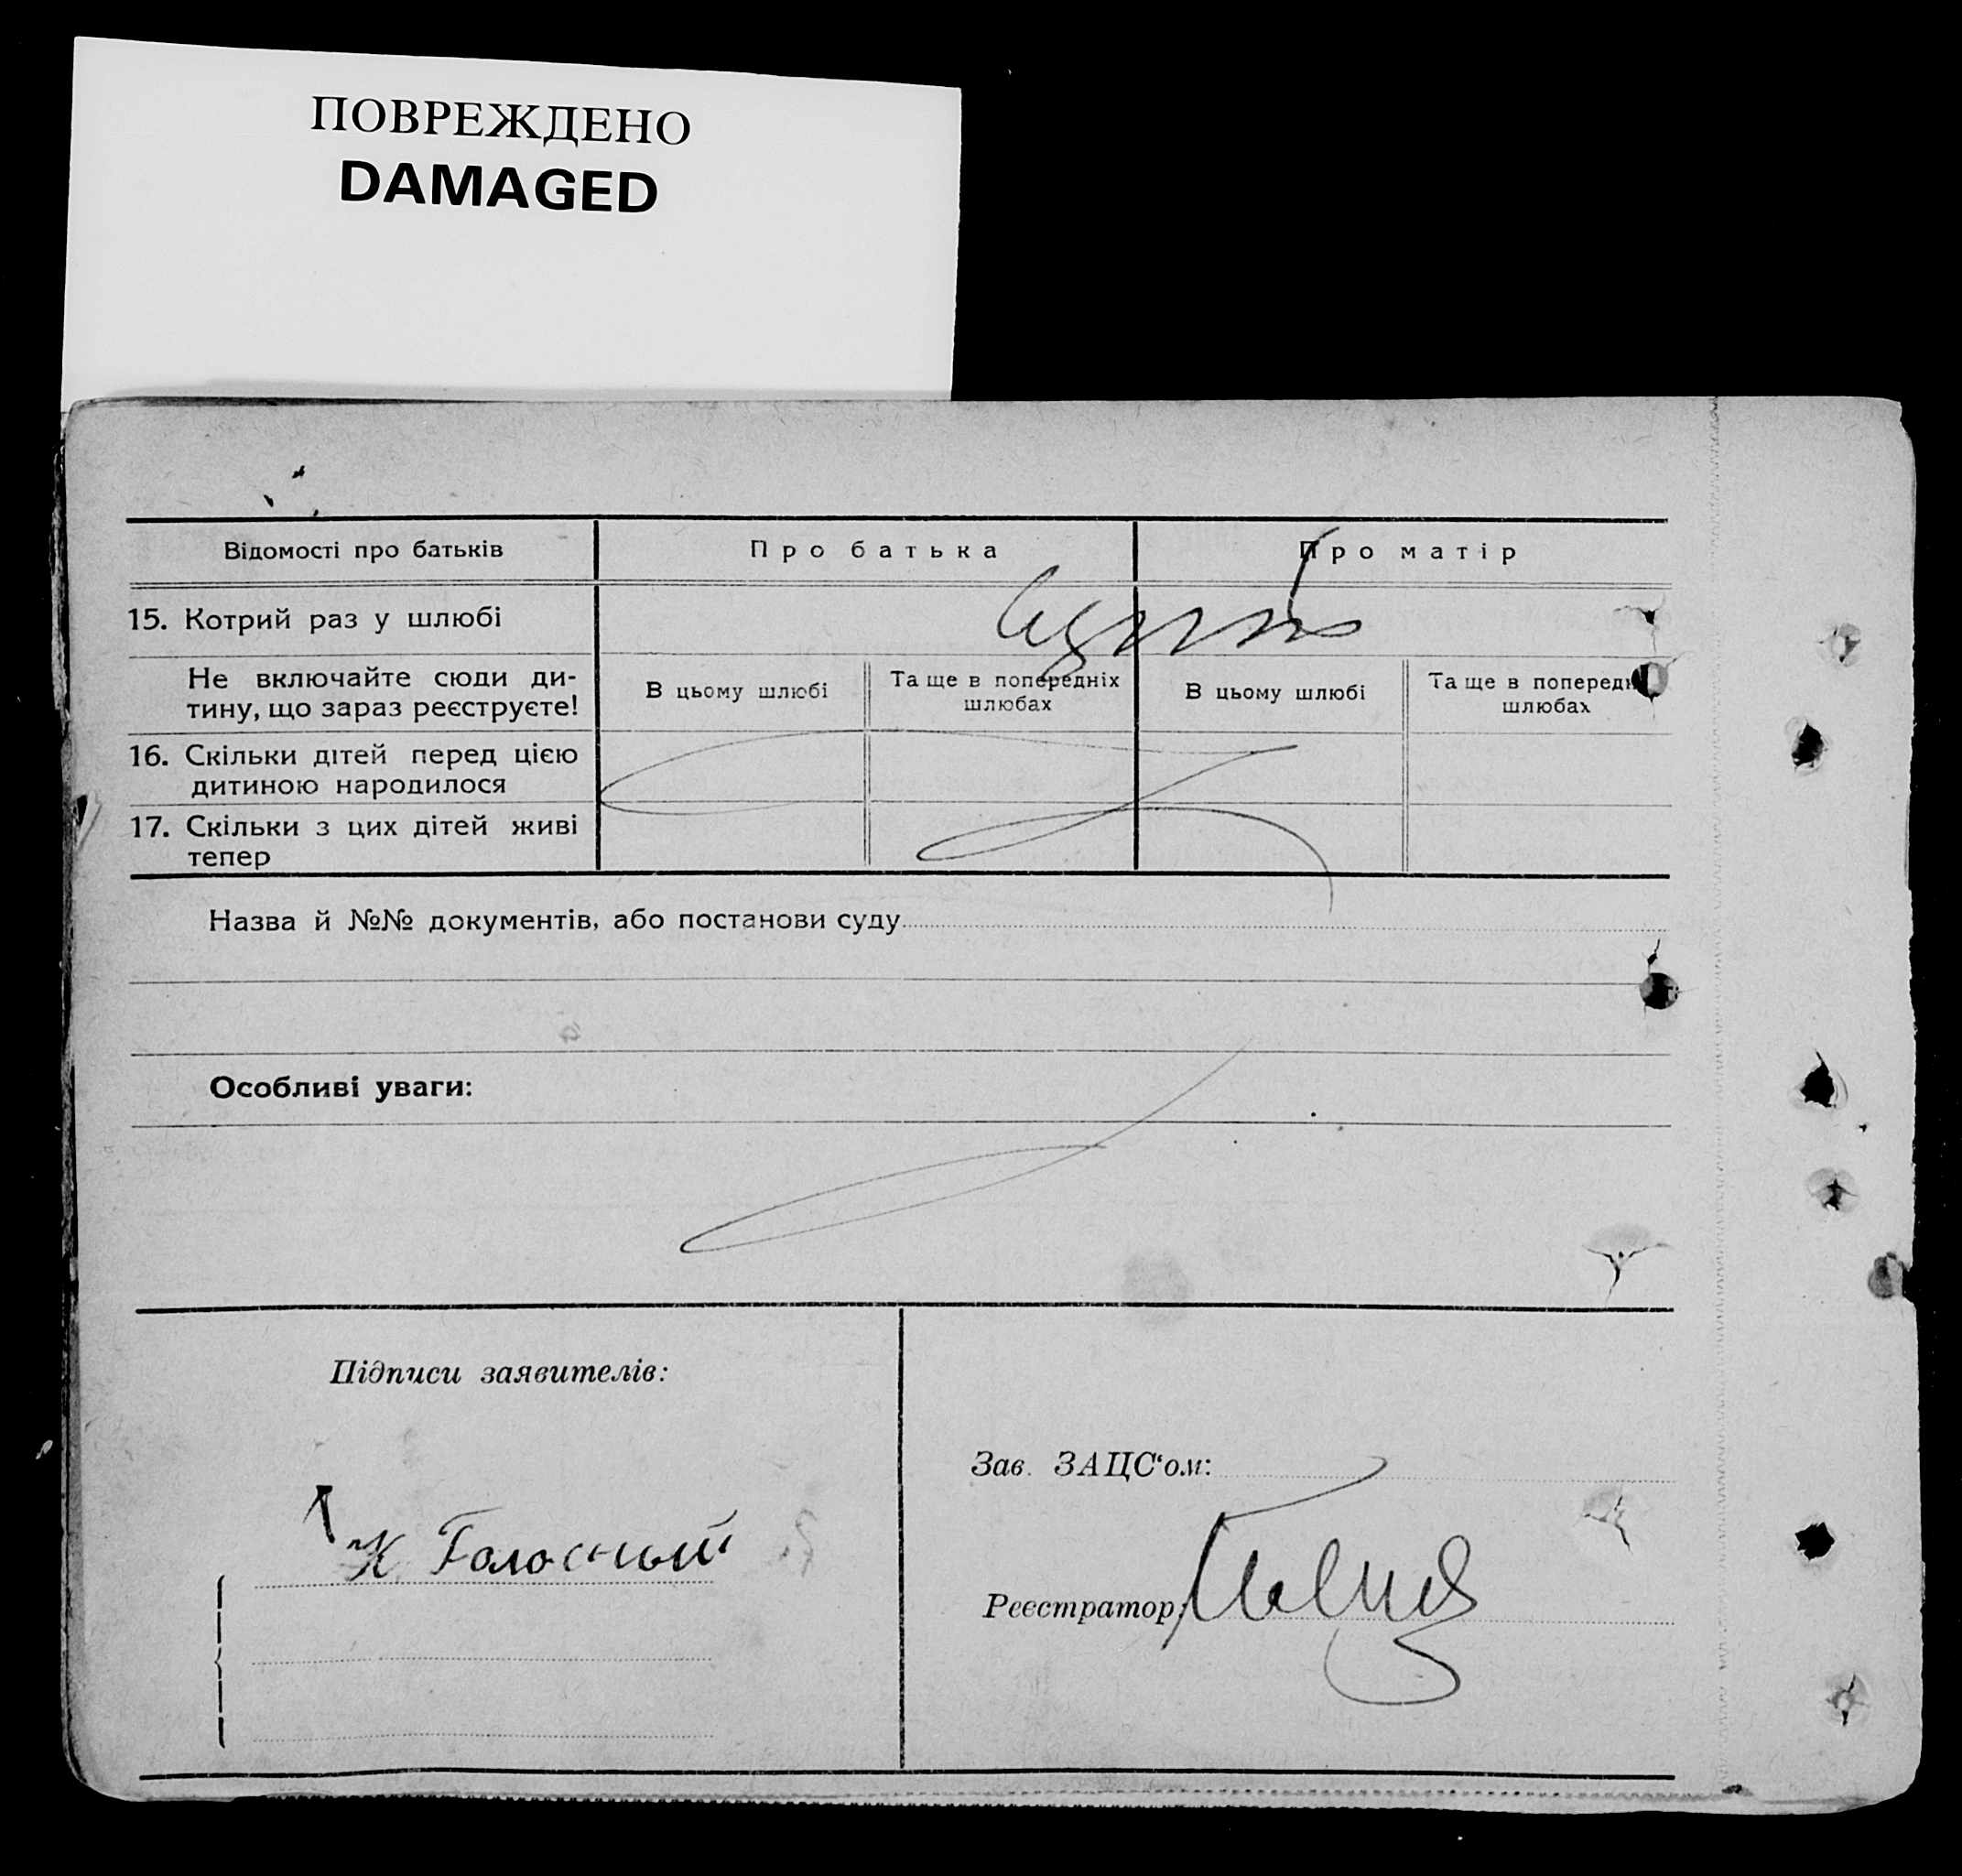 ПОВРЕЖДЕНО
DAMAGED
Відомості про батьків
Про батька
Про матір
15. Котрий раз у шлюбі
Не включайте сюди ди-
тину, що зараз реєструєте!
В цьому шлюбі
Та ще в попередніх
шлюбах
В цьому шлюбі
Та ще в поперед
шлюбах
16. Скільки дітей перед цією
дитиною народилося
17. Скільки з цих дітей живі
тепер
Назва й №№ документів, або постанови суду
Особливі уваги:
Підписи заявителів:
К Голосный
Зав. ЗАЦС‘ом:
Реєстратор: